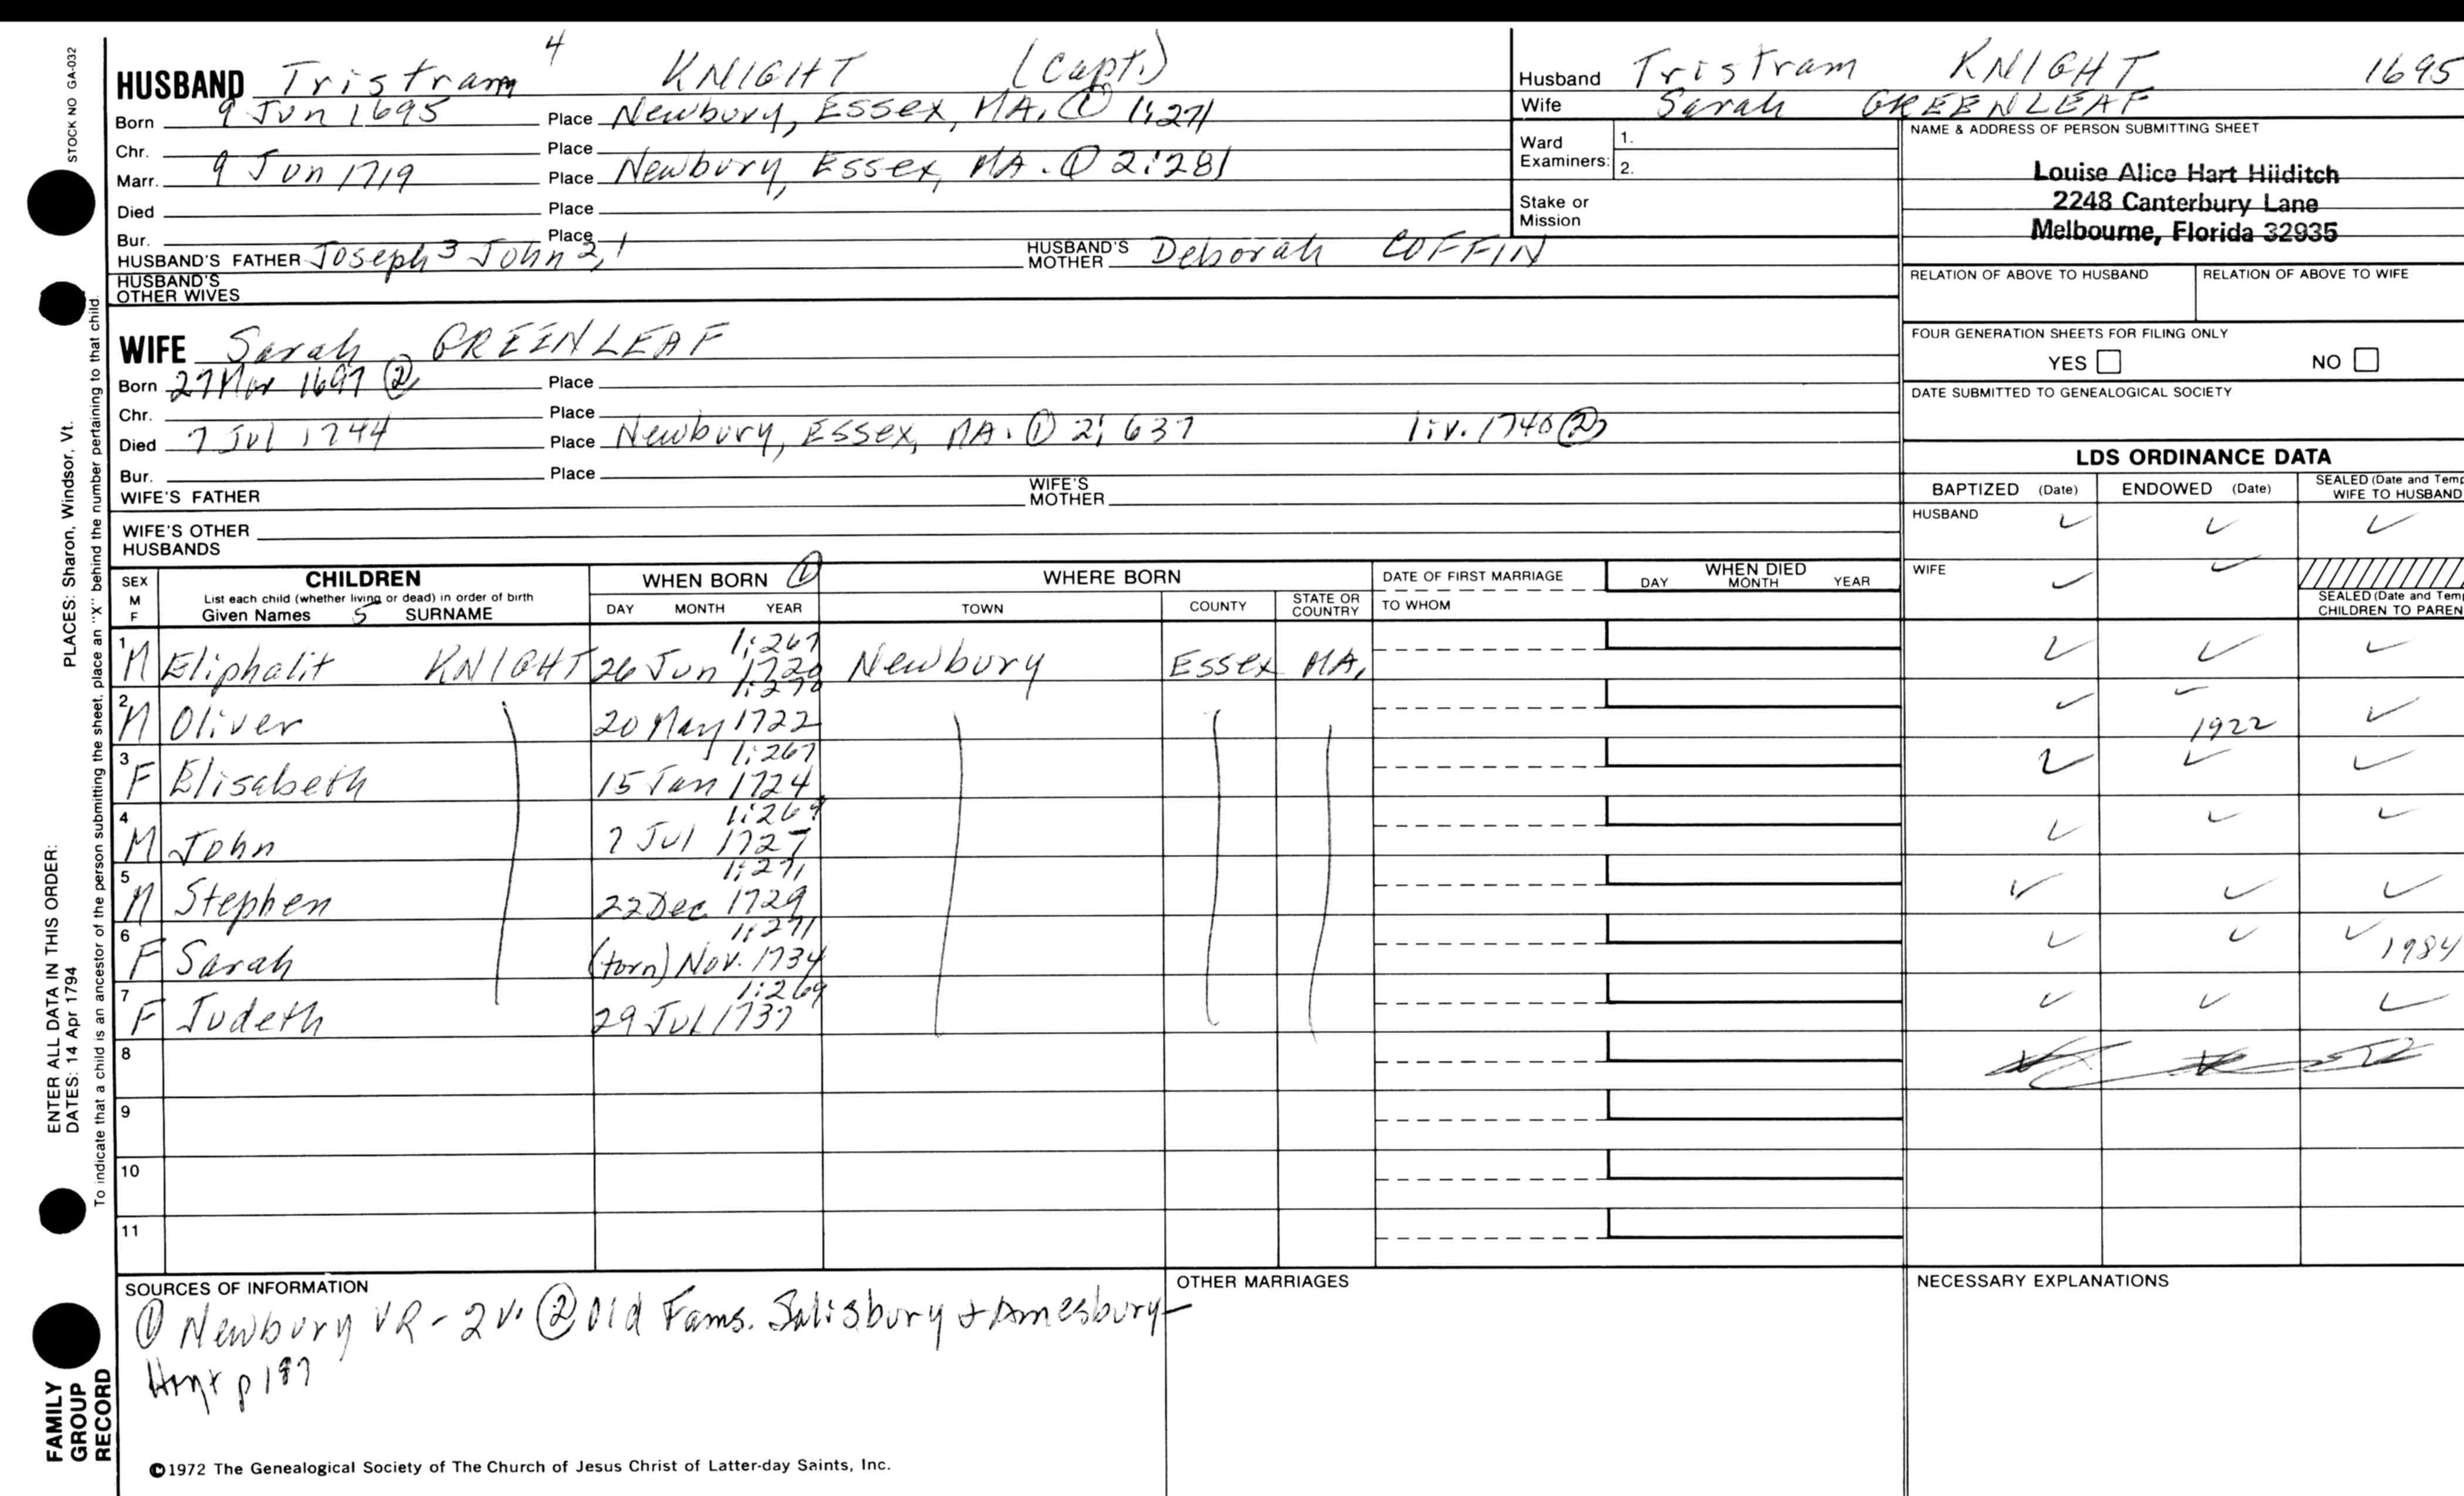 STOCK NO GA-032
PLACES: Sharon, Windsor, Vt.
ENTER ALL DATA IN THIS ORDER:
DATES: 14 Apr 1794
To indicate that a child is an ancestor of the person submitting the sheet, place an "X" behind the number pertaining to that child.
FAMILY
GROUP
RECORD
HUSBAND Tristram 4 KNIGHT (Capt.)
Born 9 Jun 1695 Place Newbury, Essex, MA. ① 1:271
Chr. Place
Marr. 9 Jun 1719 Place Newbury, Essex, MA. ① 2:281
Died Place
Bur. Place
HUSBAND'S FATHER Joseph 3 John 2,1 HUSBAND'S MOTHER Deborah COFFIN
HUSBAND'S
OTHER WIVES
WIFE Sarah GREENLEAF
Born 27 Mar 1697 ② Place
Chr. Place
Died 7 Jul 1744 Place Newbury, Essex, MA. ① 2:637 liv. 1740 ②
Bur. Place
WIFE'S FATHER WIFE'S MOTHER
WIFE'S OTHER
HUSBANDS
Husband Tristram KNIGHT 1695
Wife Sarah GREENLEAF
Ward
Examiners: 1.
2.
Stake or
Mission
NAME & ADDRESS OF PERSON SUBMITTING SHEET
Louise Alice Hart Hilditch
2248 Canterbury Lane
Melbourne, Florida 32935
RELATION OF ABOVE TO HUSBAND RELATION OF ABOVE TO WIFE
FOUR GENERATION SHEETS FOR FILING ONLY
YES NO
DATE SUBMITTED TO GENEALOGICAL SOCIETY
LDS ORDINANCE DATA
BAPTIZED (Date) ENDOWED (Date) SEALED (Date and Temp
WIFE TO HUSBAND
HUSBAND ✓ ✓ ✓
WIFE ✓ ✓
SEALED (Date and Tem
CHILDREN TO PAREN
SEX
M
F
CHILDREN
List each child (whether living or dead) in order of birth
Given Names 5 SURNAME
WHEN BORN ①
DAY MONTH YEAR
WHERE BORN
TOWN COUNTY STATE OR COUNTRY
DATE OF FIRST MARRIAGE
TO WHOM
WHEN DIED
DAY MONTH YEAR
1:267
1 M Eliphalit KNIGHT 26 Jun 1720 Newbury Essex MA. ✓ ✓ ✓
1:270
2 M Oliver 20 May 1722 ✓ ✓ 1922 ✓
1:267
3 F Elisabeth 15 Jan 1724 ✓ ✓ ✓
1:269
4 M John 7 Jul 1727 ✓ ✓ ✓
1:271
5 M Stephen 22 Dec 1729 ✓ ✓ ✓
1:271
6 F Sarah (torn) Nov. 1734 ✓ ✓ ✓ 1984
1:269
7 F Judeth 29 Jul 1737 ✓ ✓ ✓
8
9
10
11
SOURCES OF INFORMATION
① Newbury VR - 2 v. ② Old Fams. Salisbury + Amesbury -
Hoyt p 187
OTHER MARRIAGES
NECESSARY EXPLANATIONS
©1972 The Genealogical Society of The Church of Jesus Christ of Latter-day Saints, Inc.